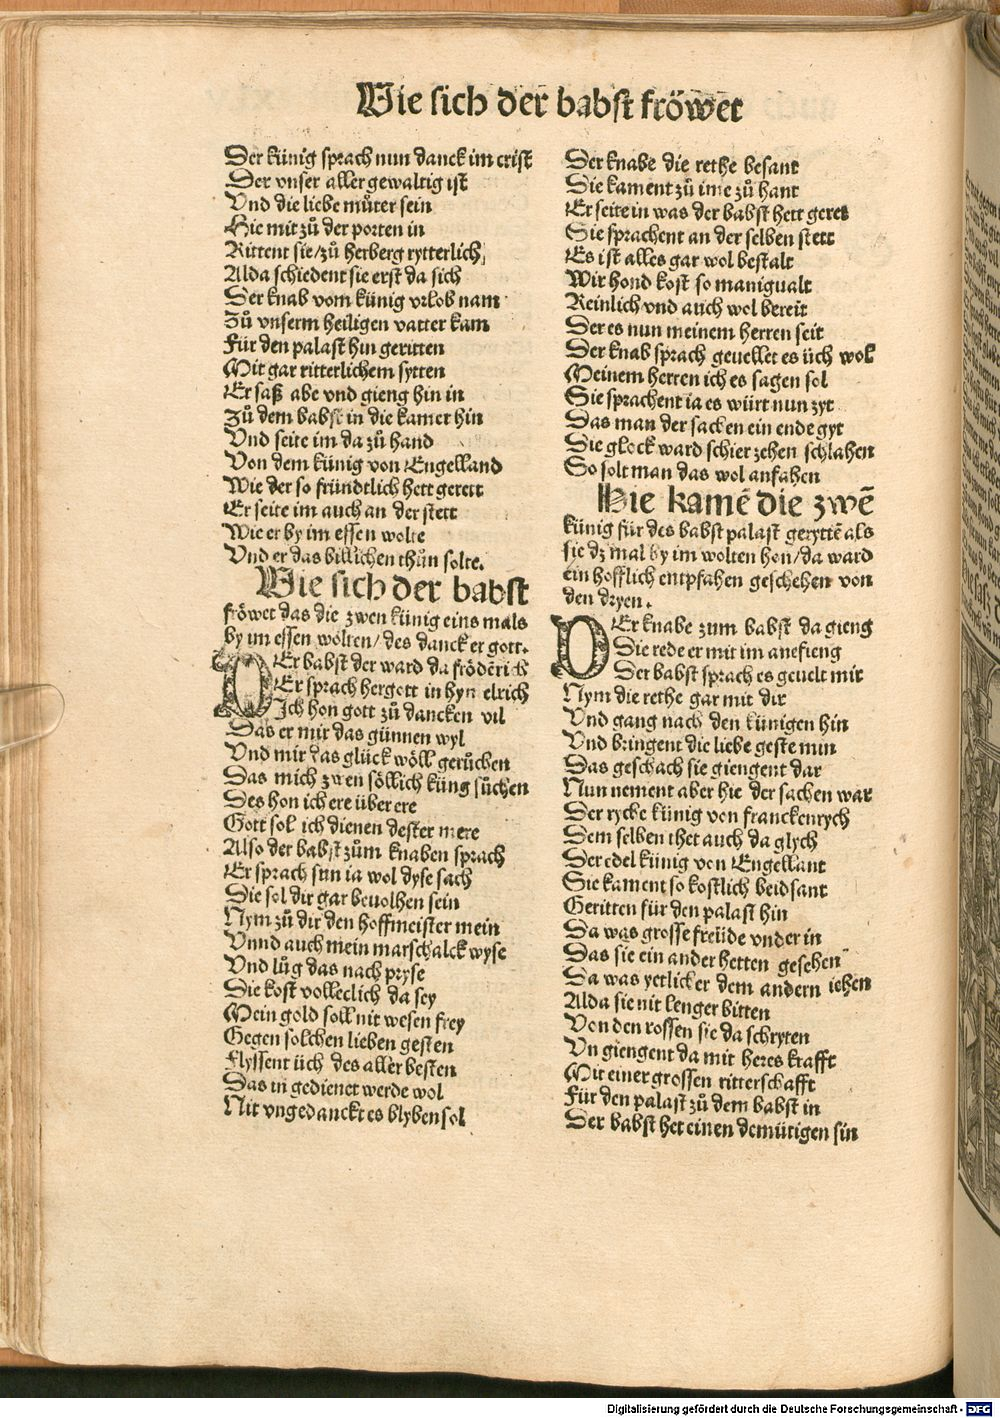 Wie sich der babst fröwet
Der künig sprach nun danck im crist
Der vnser aller gewaltig ist
Vnd die liebe můter sein
Hie mit zů der porten in
Rittent sie/zů herberg rytterlich
Alda schiedent sie erst da sich
Der knab vom künig vrlob nam
Zů vnserm heiligen vatter kam
Für den palast hin geritten
Mit gar ritterlichem sytten
Er saß abe vnd gieng hin in
Zů dem babst in die kamer hin
Vnd seite im da zů hand
Von dem künig von Engelland
Wie der so fründtlich hett gerett
Er seite im auch an der stett
Wie er by im essen wolte
Vnd er das billichen thůn solte.
Wie sich der babst
fröwet das die zwen künig eins mals
by im essen wölten/des danckt er gott.
DEr babst der ward da frödērich
Er sprach hergott in hymelrich
Ich hon gott zů dancken vil
Das er mir das günnen wyl
Vnd mir das glück wöll gerůchen
Das mich zwen söllich küng sůchen
Des hon ich ere über ere
Gott sol ich dienen dester mere
Also der babst zům knaben sprach
Er sprach sun ia wol dyse sach
Die sol dir gar beuolhen sein
Nym zů dir den hoffmeister mein
Vnnd auch mein marschalck wyse
Vnd lůg das nach pryse
Die kost volleclich da sey
Mein gold soll nit wesen frey
Gegen solchen lieben gesten
Flyssent üch des aller besten
Das in gedienet werde wol
Nit vngedanckt es blyben sol
Der knabe die rethe besant
Die kament zů ime zů hant
Er seite in was der babst hett geret
Sie sprachent an der selben stett
Es ist alles gar wol bestalt
Wir hond kost so manigualt
Reinlich vnd auch wol bereit
Der es nun meinem herren seit
Der knab sprach geuellet es üch wol
Meinem herren ich es sagen sol
Sie sprachent ia es würt nun zyt
Das man der sachen ein ende gyt
Die glock ward schier zehen schlahen
So solt man das wol anfahen
Hie kamē die zwē
künig für des babst palast geryttē als
sie dz mal by im wolten hon/da ward
ein hofflich entpfahen geschehen von
den dryen.
DEr knabe zum babst da gieng
Die rede er mit im anefieng
Der babst sprach es geuelt mir
Nym die rethe gar mit dir
Vnd gang nach den künigen hin
Vnd bringent die liebe geste min
Das geschach sie giengent dar
Nun nement aber hie der sachen war
Der ryche künig von franckenrych
Dem selben thet auch da glych
Der edel künig von Engellant
Sie kament so kostlich beidsant
Geritten für den palast hin
Da was grosse freüde vnder in
Das sie ein ander hetten gesehen
Da was yetlicher dem andern iehen
Alda sie nit lenger bitten
Von den rossen sie da schryten
Vn giengent da mit heres krafft
Mit einer grossen ritterschafft
Für den palast zů dem babst in
Der babst het einen demütigen sin
Digitalisierung gefördert durch die Deutsche Forschungsgemeinschaft - DFG